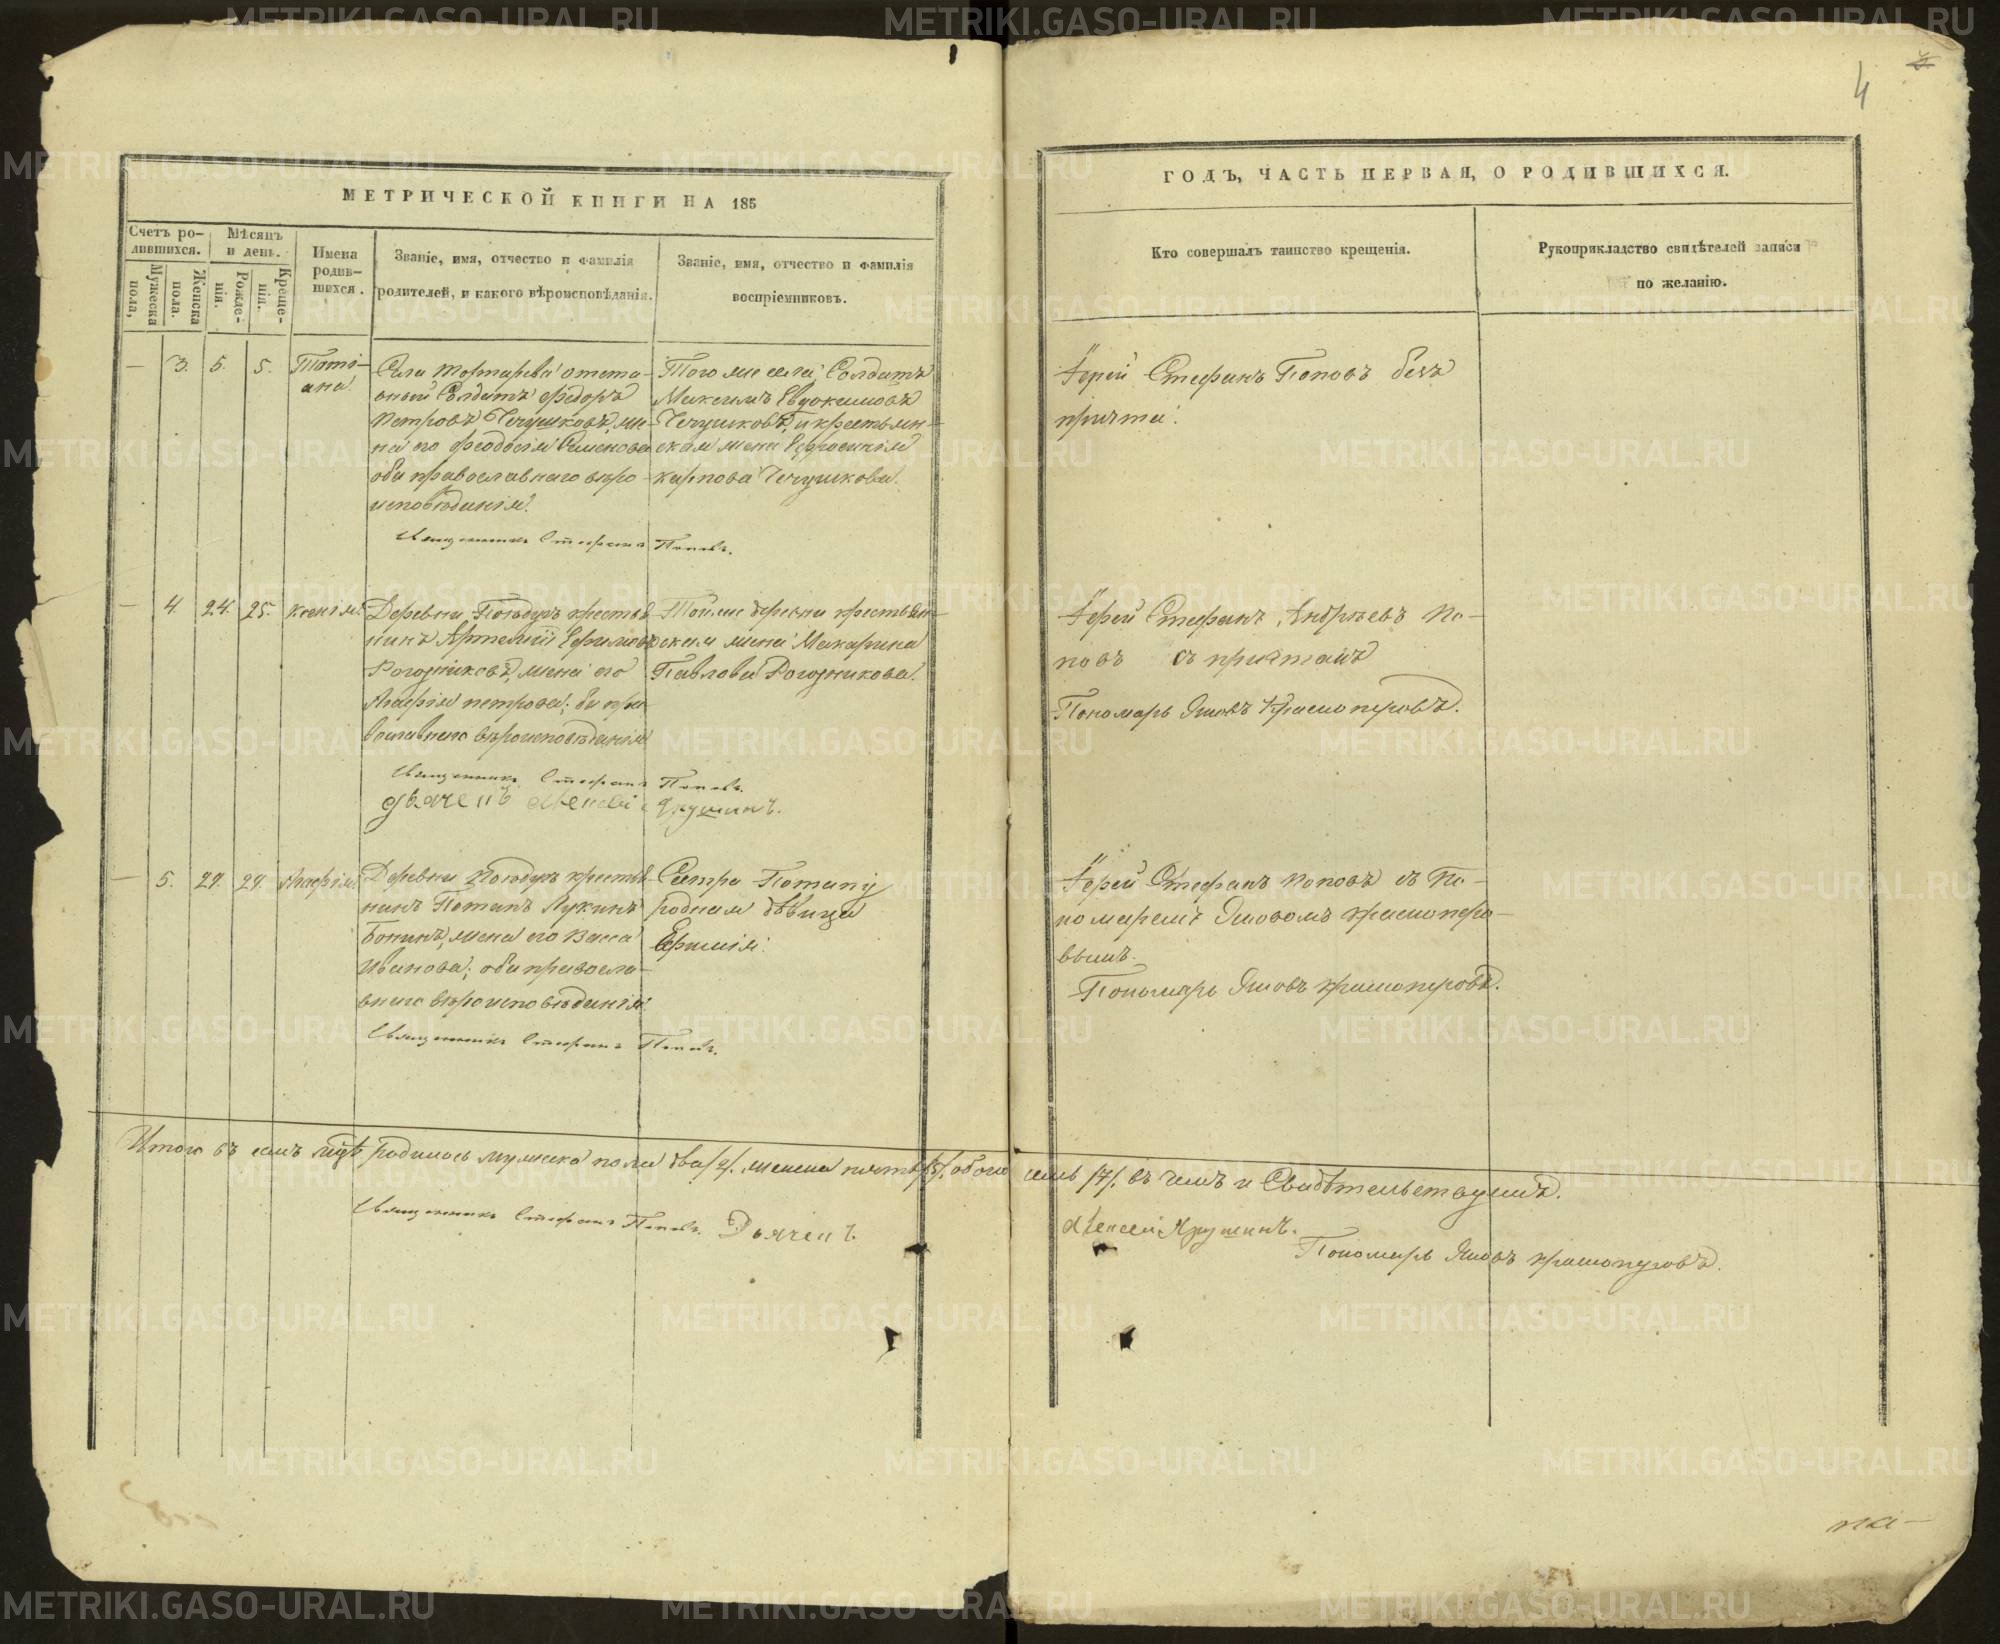 4
МЕТРИЧЕСКОЙ КНИГИ НА 185
ГОДЪ, ЧАСТЬ ПЕРВАЯ, О РОДИВШИХСЯ.
Счетъ ро-
дившихся.
Мужеска
пола,
Женска
пола.
Мѣсяцъ
и день.
Рожде-
нія.
Креще-
нія.
Имена
родив-
шихся.
Званіе, имя, отчество и фамилія
родителей, и какого вѣроисповѣданія.
Званіе, имя, отчество и фамилія
воспріемниковъ.
Кто совершалъ таинство крещенія.
Рукоприкладство свидѣтелей записи
по желанію.
— 3. 5. 5.
Тати-
ана
Села отста-
вный Солдатъ Федоръ
Петровъ Чечушковъ, же-
на его Феодосія Семенова
оба православнаго вѣро-
исповѣданія.
Того же села Солдатъ
Максимъ Евдокимовъ
Чечушковъ, и крестьян-
ская жена Ефросинія
Карпова Чечушкова.
Іерей Стефанъ Поповъ безъ
причта.
Священникъ Стефанъ Поповъ.
— 4. 24. 25.
Ксенія.
Деревни крестья-
нинъ Артемій Ефимовъ
Рогозниковъ, жена его
Агафія Петрова; оба пра-
вославнаго вѣроисповѣданія
Той же деревни крестьян-
ская жена Макарина
Павлова Рогозникова.
Іерей Стефанъ Андреевъ По-
повъ съ причтомъ
Пономарь Яковъ Красноперовъ.
Священникъ Стефанъ Поповъ.
Дьячекъ Алексей Якушинъ.
— 5. 29. 29.
Агафія
Деревни крестья-
нинъ Потапъ Лукинъ
Бонинъ, жена его Васса
Иванова; оба правосла-
внаго вѣроисповѣданія.
Сестра Потапу
родная дѣвица
Ефимія.
Іерей Стефанъ Поповъ съ По-
номаремъ Яковомъ Красноперо-
вымъ.
Пономарь Яковъ Красноперовъ.
Священникъ Стефанъ Поповъ.
Итого въ семъ родилось мужска пола два /2/. женска пять /5/. обоего семь /7/. въ чемъ и Свидѣтельствуемъ.
Священникъ Стефанъ Поповъ. Дьячекъ Алексей Якушинъ.
Пономарь Яковъ Красноперовъ.
METRIKI.GASO-URAL.RU